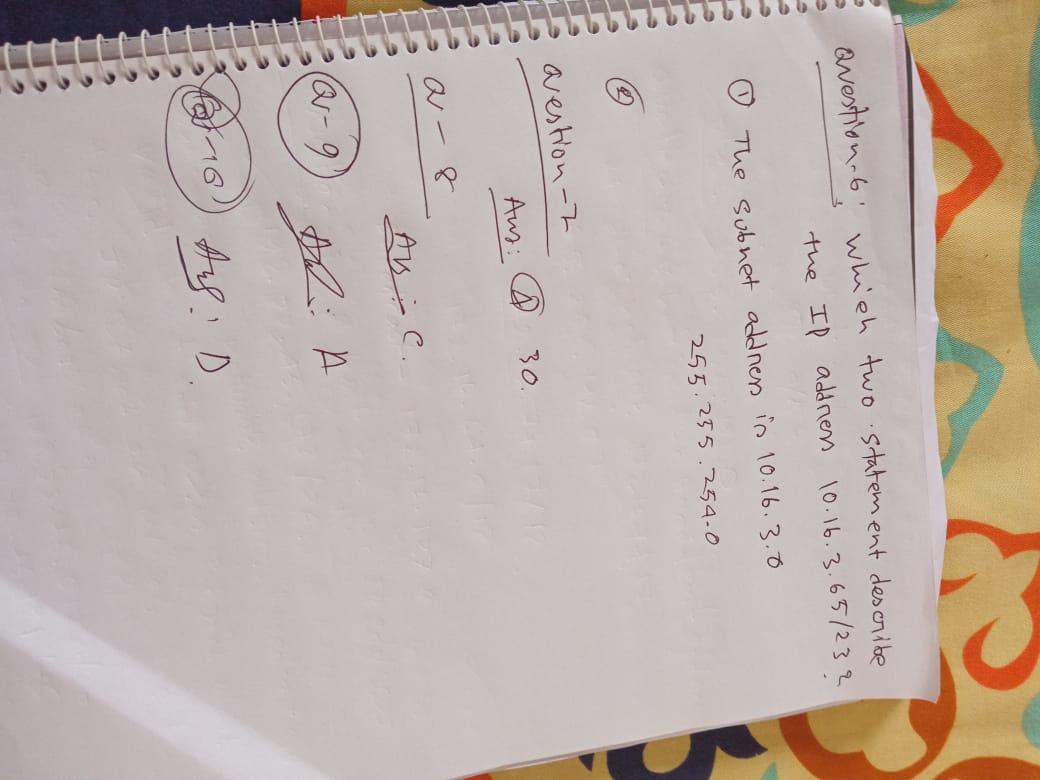 Question-6: Which two statement describe
the IP address 10.16.3.65/23?
① The subnet address is 10.16.3.0
255.255.254.0
②
Question-7
Ans: 30.
Q-8
Ans: C.
Q-9
Ans: A
Q-10
Ans: D.